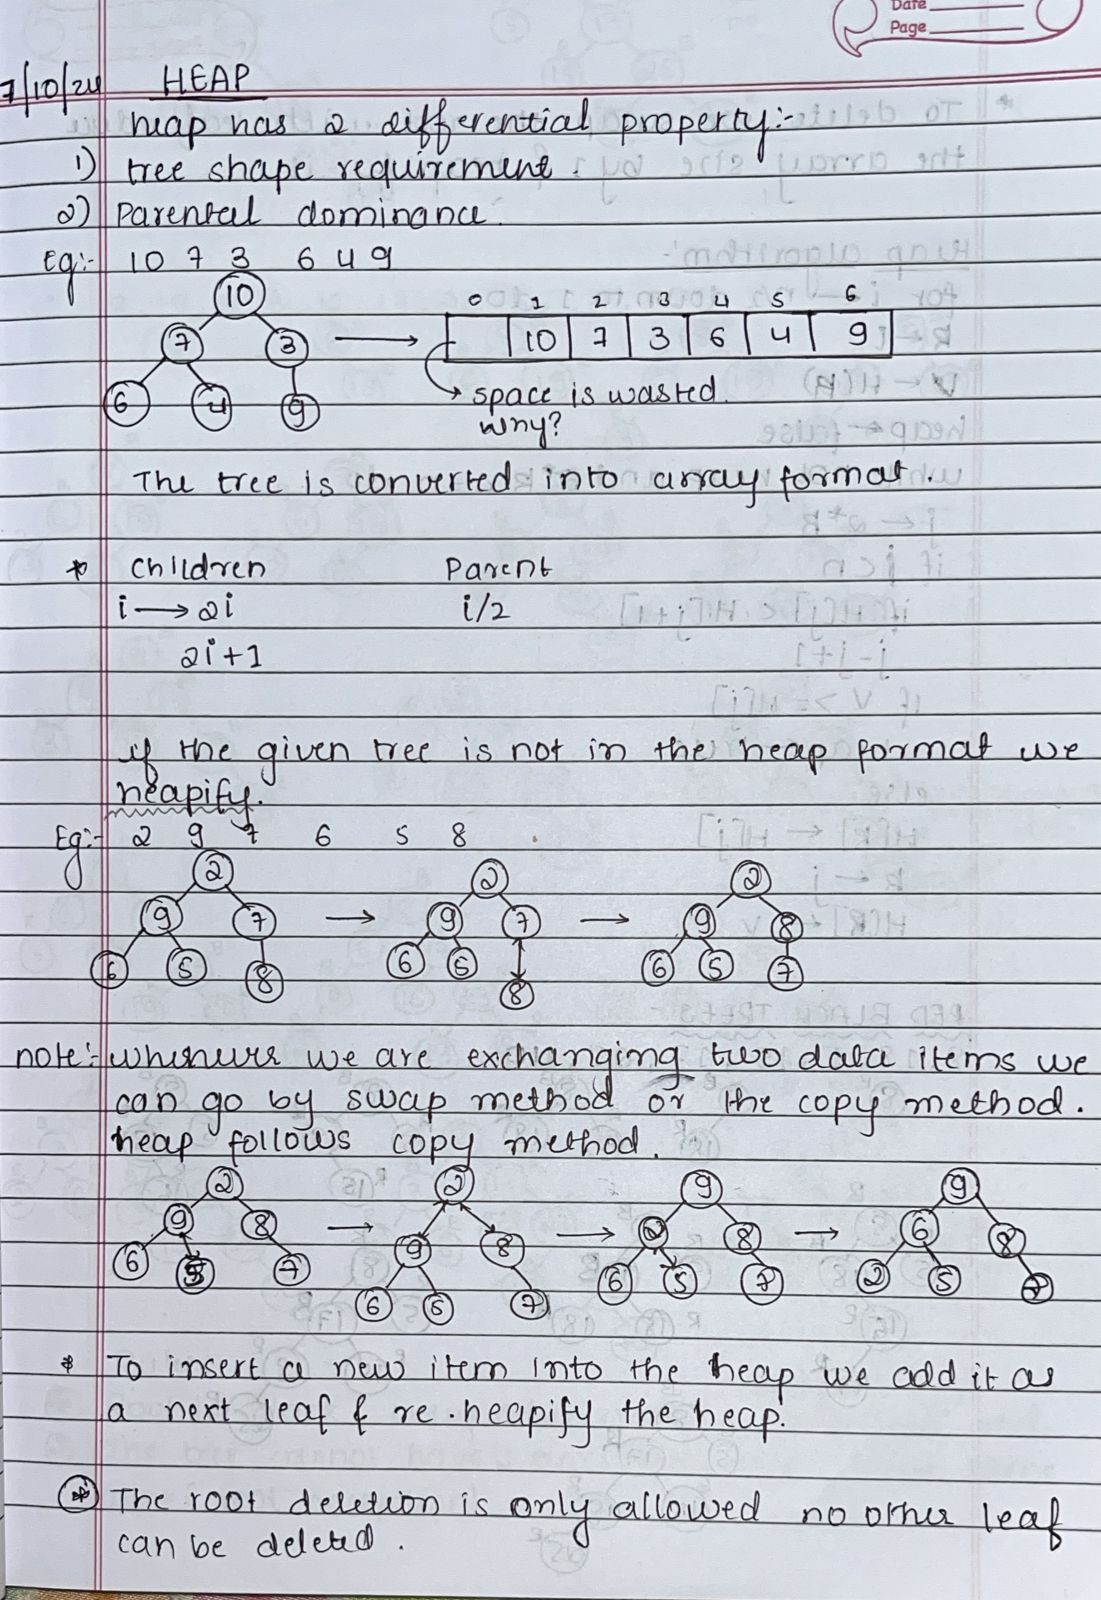 Date
Page
7/10/24 HEAP
heap has 2 differential property:-
1) tree shape requirement.
2) Parental dominance.
Eg:- 10 7 3 6 4 9
10
0 1 2 3 4 5 6
7 3
10 7 3 6 4 9
6 4 9
space is wasted.
why?
The tree is converted into array format.
* children Parent
i → 2i i/2
2i+1
if the given tree is not in the heap format we
heapify.
Eg:- 2 9 7 6 5 8
2 2 2
9 7 → 9 7 → 9 8
6 5 8 6 5 8 6 5 7
note:- whenever we are exchanging two data items we
can go by swap method or the copy method.
heap follows copy method.
2 2 9 9
9 8 → 9 8 → 2 8 → 6 8
6 5 7 6 5 7 6 5 7 2 5 7
* To insert a new item into the heap we add it as
a next leaf & re-heapify the heap.
* The root deletion is only allowed no other leaf
can be deleted.